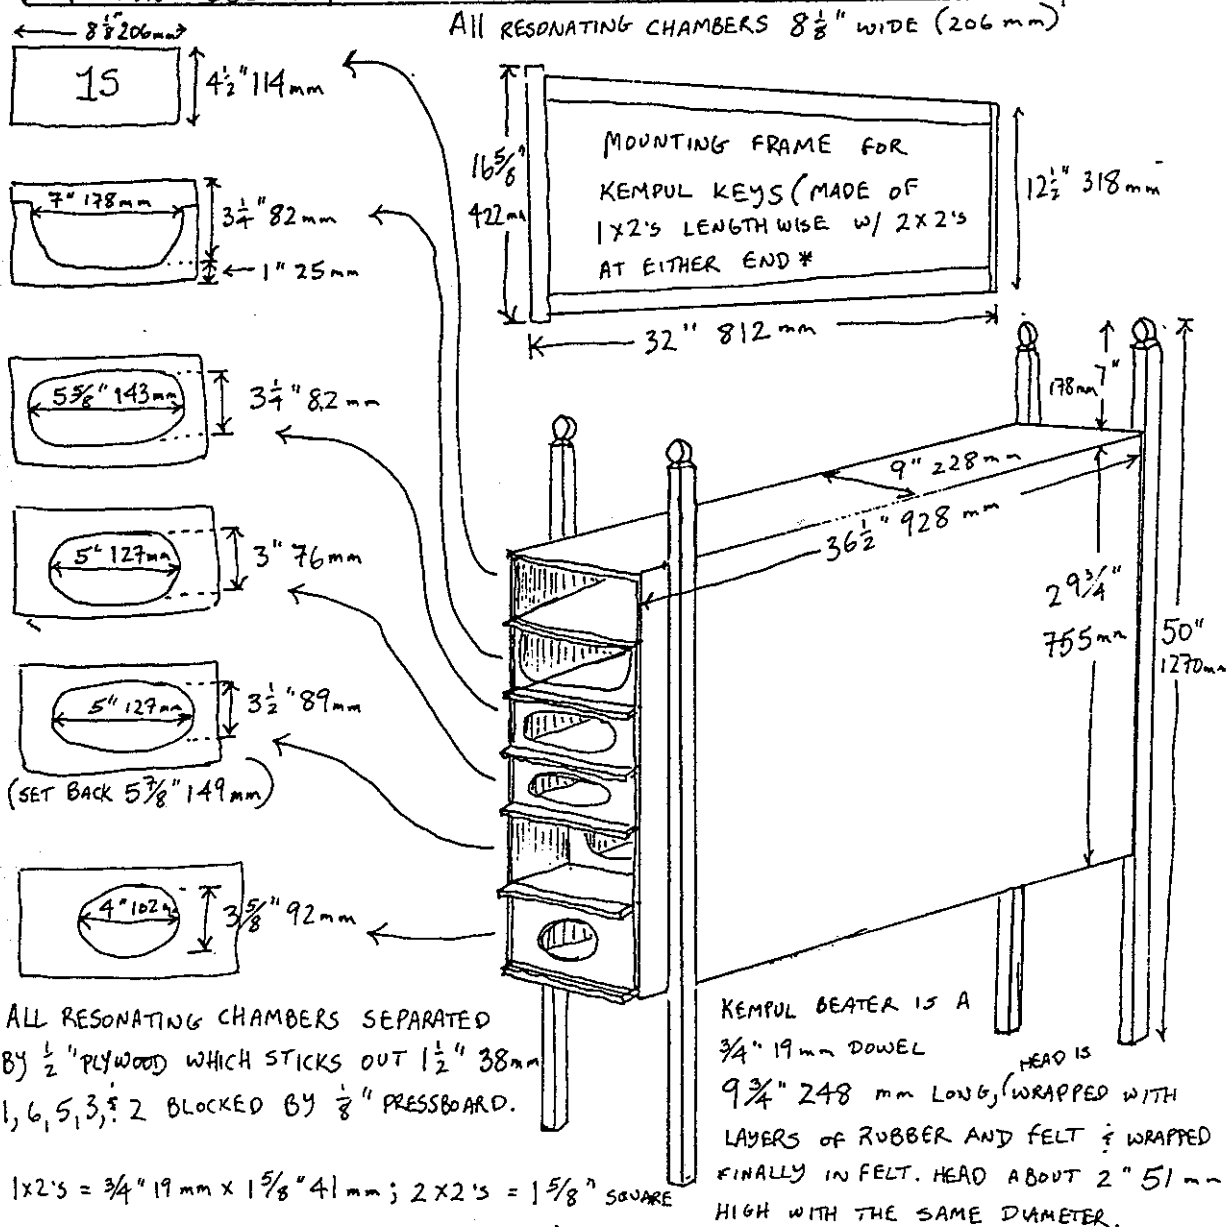 All RESONATING CHAMBERS 8 1/8" WIDE (206 mm)
8 1/8" 206mm
15
4 1/2" 114mm
7" 178mm
3 1/4" 82mm
1" 25mm
5 5/8" 143mm
3 1/4" 82mm
5" 127mm
3" 76mm
5" 127mm
3 1/2" 89mm
(SET BACK 5 7/8" 149mm)
4" 102
3 5/8" 92mm
16 5/8"
422mm
MOUNTING FRAME FOR
KEMPUL KEYS (MADE OF
1X2'S LENGTHWISE W/ 2X2'S
AT EITHER END *
12 1/2" 318mm
32" 812mm
178mm 7"
9" 228mm
36 1/2" 928 mm
29 3/4"
755mm
50"
1270mm
ALL RESONATING CHAMBERS SEPARATED
BY 1/2 "PLYWOOD WHICH STICKS OUT 1 1/2" 38mm
1, 6, 5, 3, & 2 BLOCKED BY 1/8" PRESSBOARD.
1X2'S = 3/4" 19mm X 1 5/8" 41mm; 2X2'S = 1 5/8" SQUARE
KEMPUL BEATER IS A
3/4" 19mm DOWEL
HEAD IS
9 3/4" 248 mm LONG, (WRAPPED WITH
LAYERS OF RUBBER AND FELT & WRAPPED
FINALLY IN FELT. HEAD ABOUT 2" 51mm
HIGH WITH THE SAME DIAMETER.